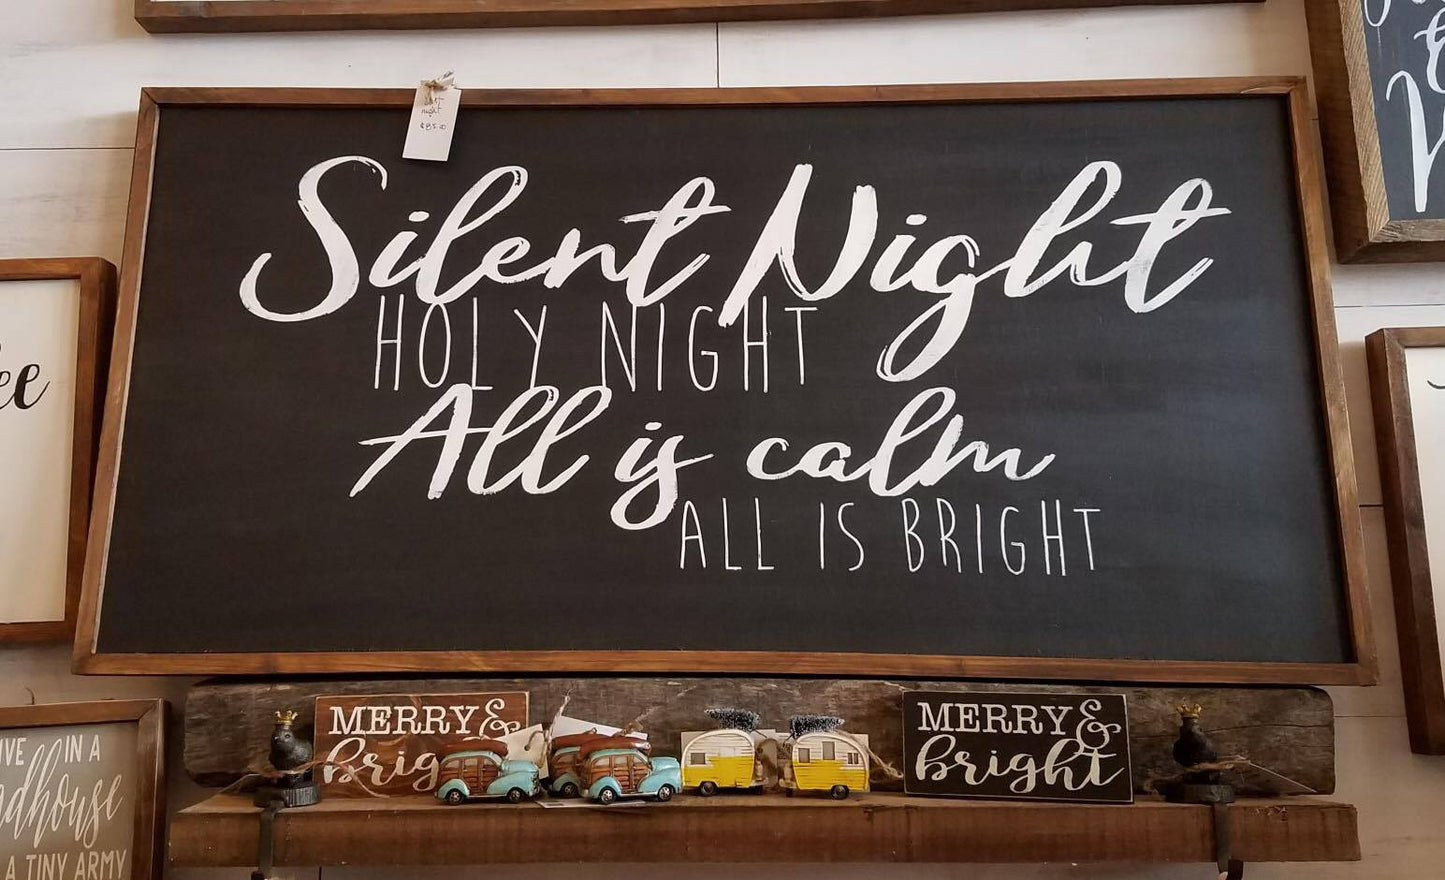 night
$85.00
Silent Night
HOLY NIGHT
All is calm
ALL IS BRIGHT
MERRY &
brig
MERRY &
bright
ee
IVE IN A
dhouse
A TINY ARMY